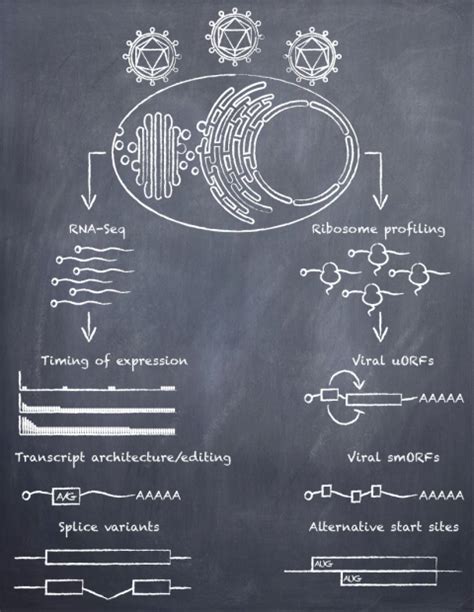 RNA-Seq
Ribosome profiling
Timing of expression
Viral uORFs
AAAAA
Transcript architecture/editing
Viral smORFs
A/G
AAAAA
AAAAA
Splice variants
Alternative start sites
AUG
AUG